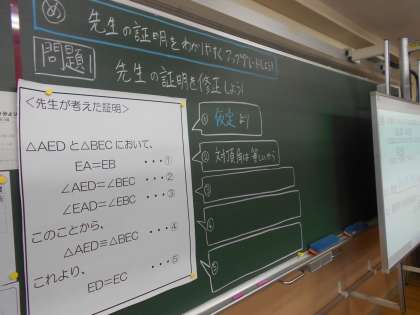 め 先生の証明をわかりやすくアップグレードしよう!
問題1 先生の証明を修正しよう!
<先生が考えた証明>
△AEDと△BECにおいて、
EA=EB ・・・①
∠AED=∠BEC ・・・②
∠EAD=∠EBC ・・・③
このことから、
△AED≡△BEC ・・・④
これより、
ED=EC ・・・⑤
① 仮定より
② 対頂角は等しいから
③
④
⑤